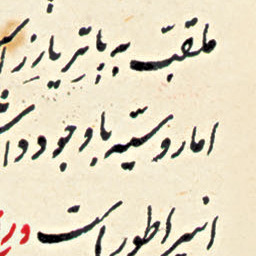 ملقب به پاتریاززا
اما روسیه با وجود و
انیراطوراست در